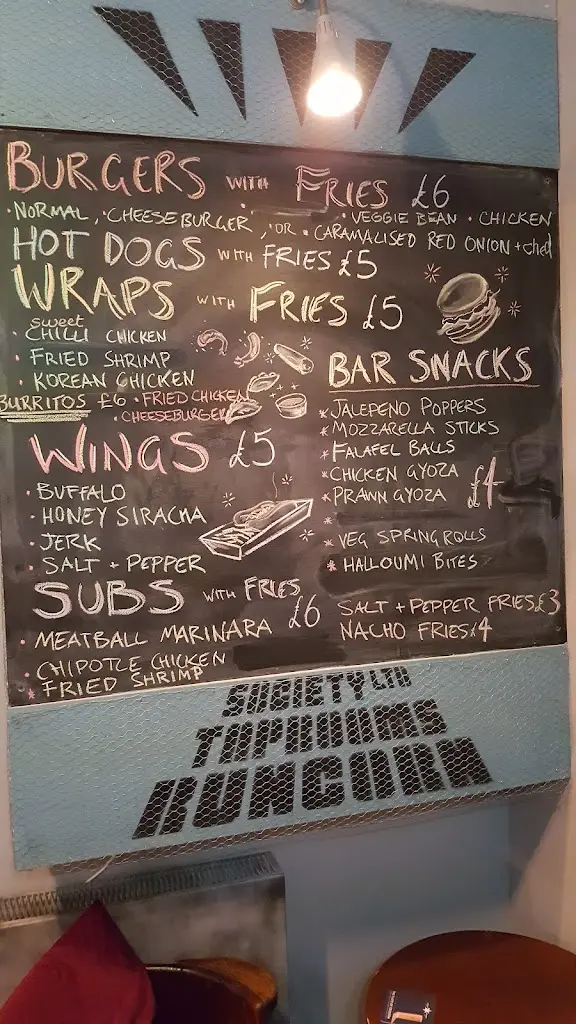 BURGERS WITH FRIES £6
• NORMAL, • CHEESEBURGER • VEGGIE BEAN • CHICKEN
, OR • CARAMALISED RED ONION + ched
HOT DOGS WITH FRIES £5
WRAPS WITH FRIES £5
• sweet CHILLI CHICKEN
• FRIED SHRIMP
• KOREAN CHICKEN
BURRITOS £6 • FRIED CHICKEN
• CHEESEBURGER
WINGS £5
• BUFFALO
• HONEY SIRACHA
• JERK
• SALT + PEPPER
SUBS WITH FRIES £6
• MEATBALL MARINARA
• CHIPOTLE CHICKEN
* FRIED SHRIMP
BAR SNACKS
* JALEPENO POPPERS
* MOZZARELLA STICKS
* FALAFEL BALLS
* CHICKEN GYOZA £4
* PRAWN GYOZA
*
* VEG SPRING ROLLS
* HALLOUMI BITES
SALT + PEPPER FRIES £3
NACHO FRIES £4
SOCIETY LTD
TAPROOMS
RUNCORN